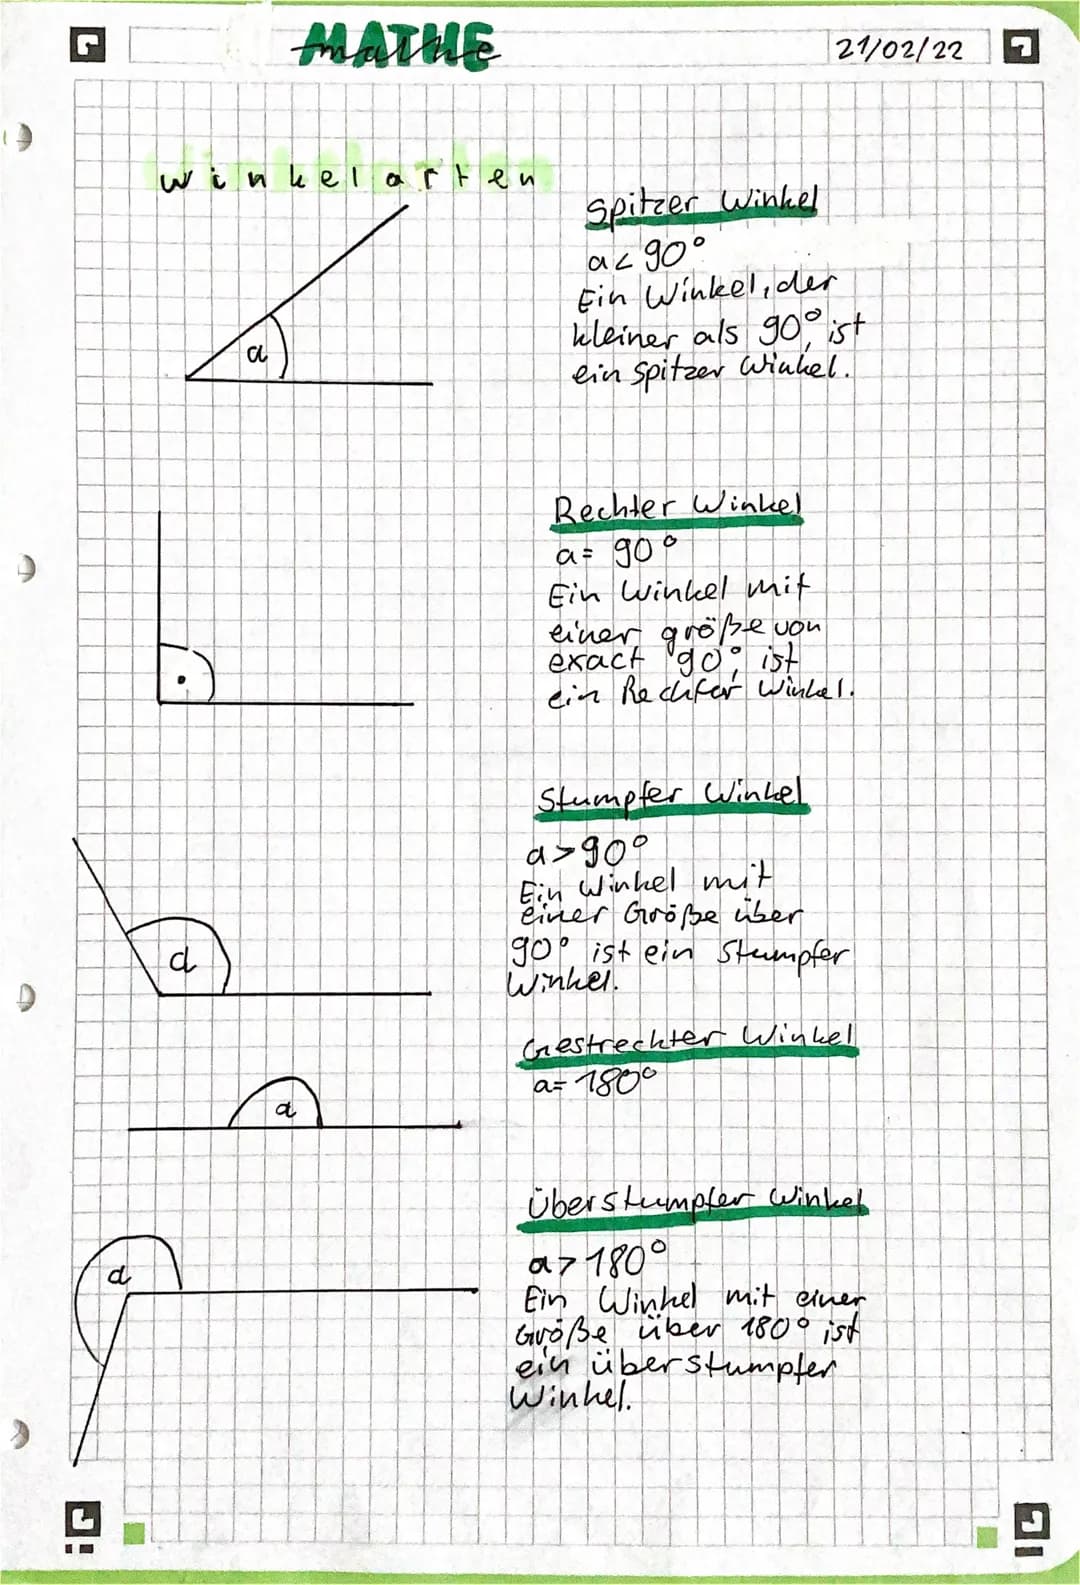 MATHE
mathe
21/02/22
Winkelarten
Spitzer Winkel
a < 90°
Ein Winkel, der
kleiner als 90°, ist
ein Spitzer Winkel.
a
Rechter Winkel
a = 90°
Ein Winkel mit
einer größe von
exact 90°, ist
ein Rechter Winkel.
Stumpfer Winkel
a > 90°
Ein Winkel mit
einer Größe über
90° ist ein Stumpfer
Winkel.
a
Gestreckter Winkel
a = 180°
a
Überstumpfer Winkel
a > 180°
Ein Winkel mit einer
Größe über 180° ist
ein überstumpfer
Winkel.
a